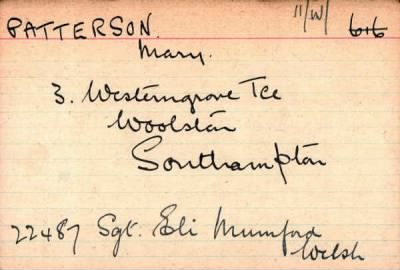 PATTERSON. 11/W/ 616
Mary.
3. Westerngrove Tce
Woolston
Southampton
22487 Sgt. Eli Mumford
Welsh